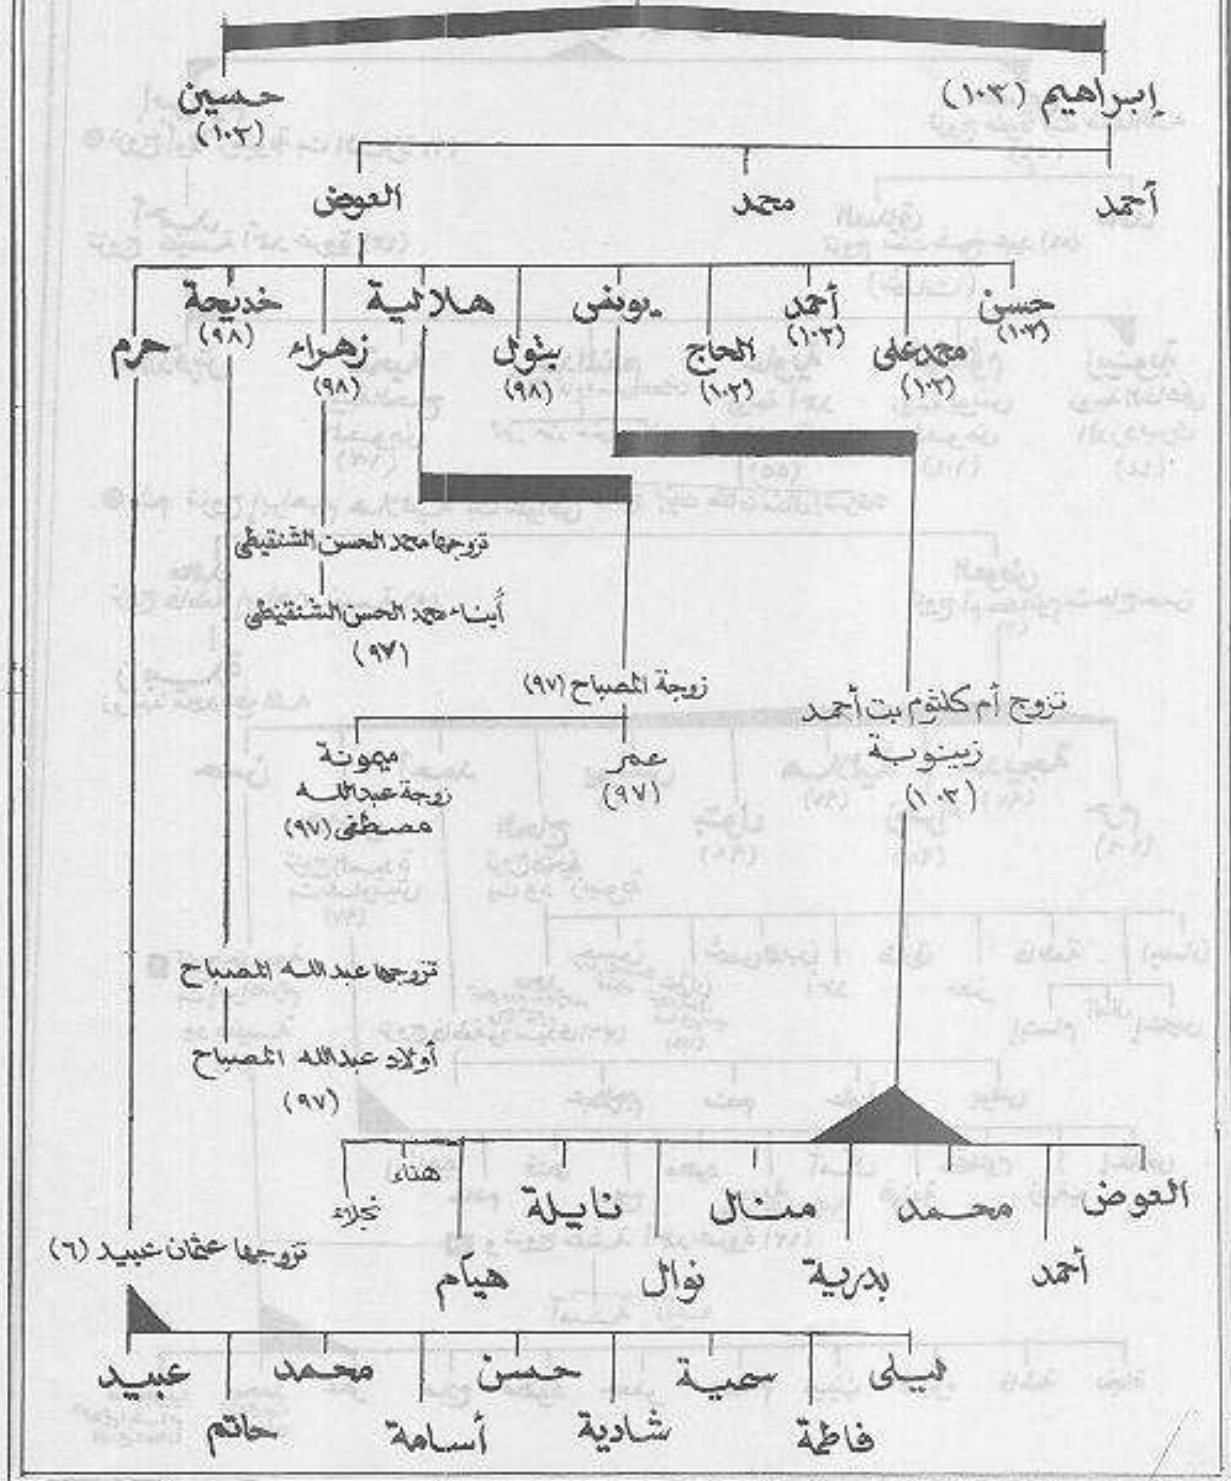 إبراهيم (١٠٣)
حسين
(١٠٣)
أحمد
محمد
العوض
حسن
(١٠٣)
محمد على
(١٠٣)
أحمد
(١٠٣)
الحاج
(١٠٣)
يونس
بتول
(٩٨)
هلالية
زهراء
(٩٨)
خديجة
(٩٨)
حرم
تزوجها محمد الحسن الشنقيطى
أبناء محمد الحسن الشنقيطى
(٩٧)
زوجة المصباح (٩٧)
عمر
(٩٧)
ميمونة
زوجة عبدالله
مصطفى (٩٧)
تزوج أم كلثوم بت أحمد
زينوبة
(١٠٣)
تزوجها عبدالله المصباح
أولاد عبدالله المصباح
(٩٧)
العوض
أحمد
محمد
بدرية
منال
نوال
نايلة
هيام
هناء
نجلاء
تزوجها عثمان عبيد (٦)
ليلى
فاطمة
سمية
شادية
حسن
أسامة
محمد
حاتم
عبيد